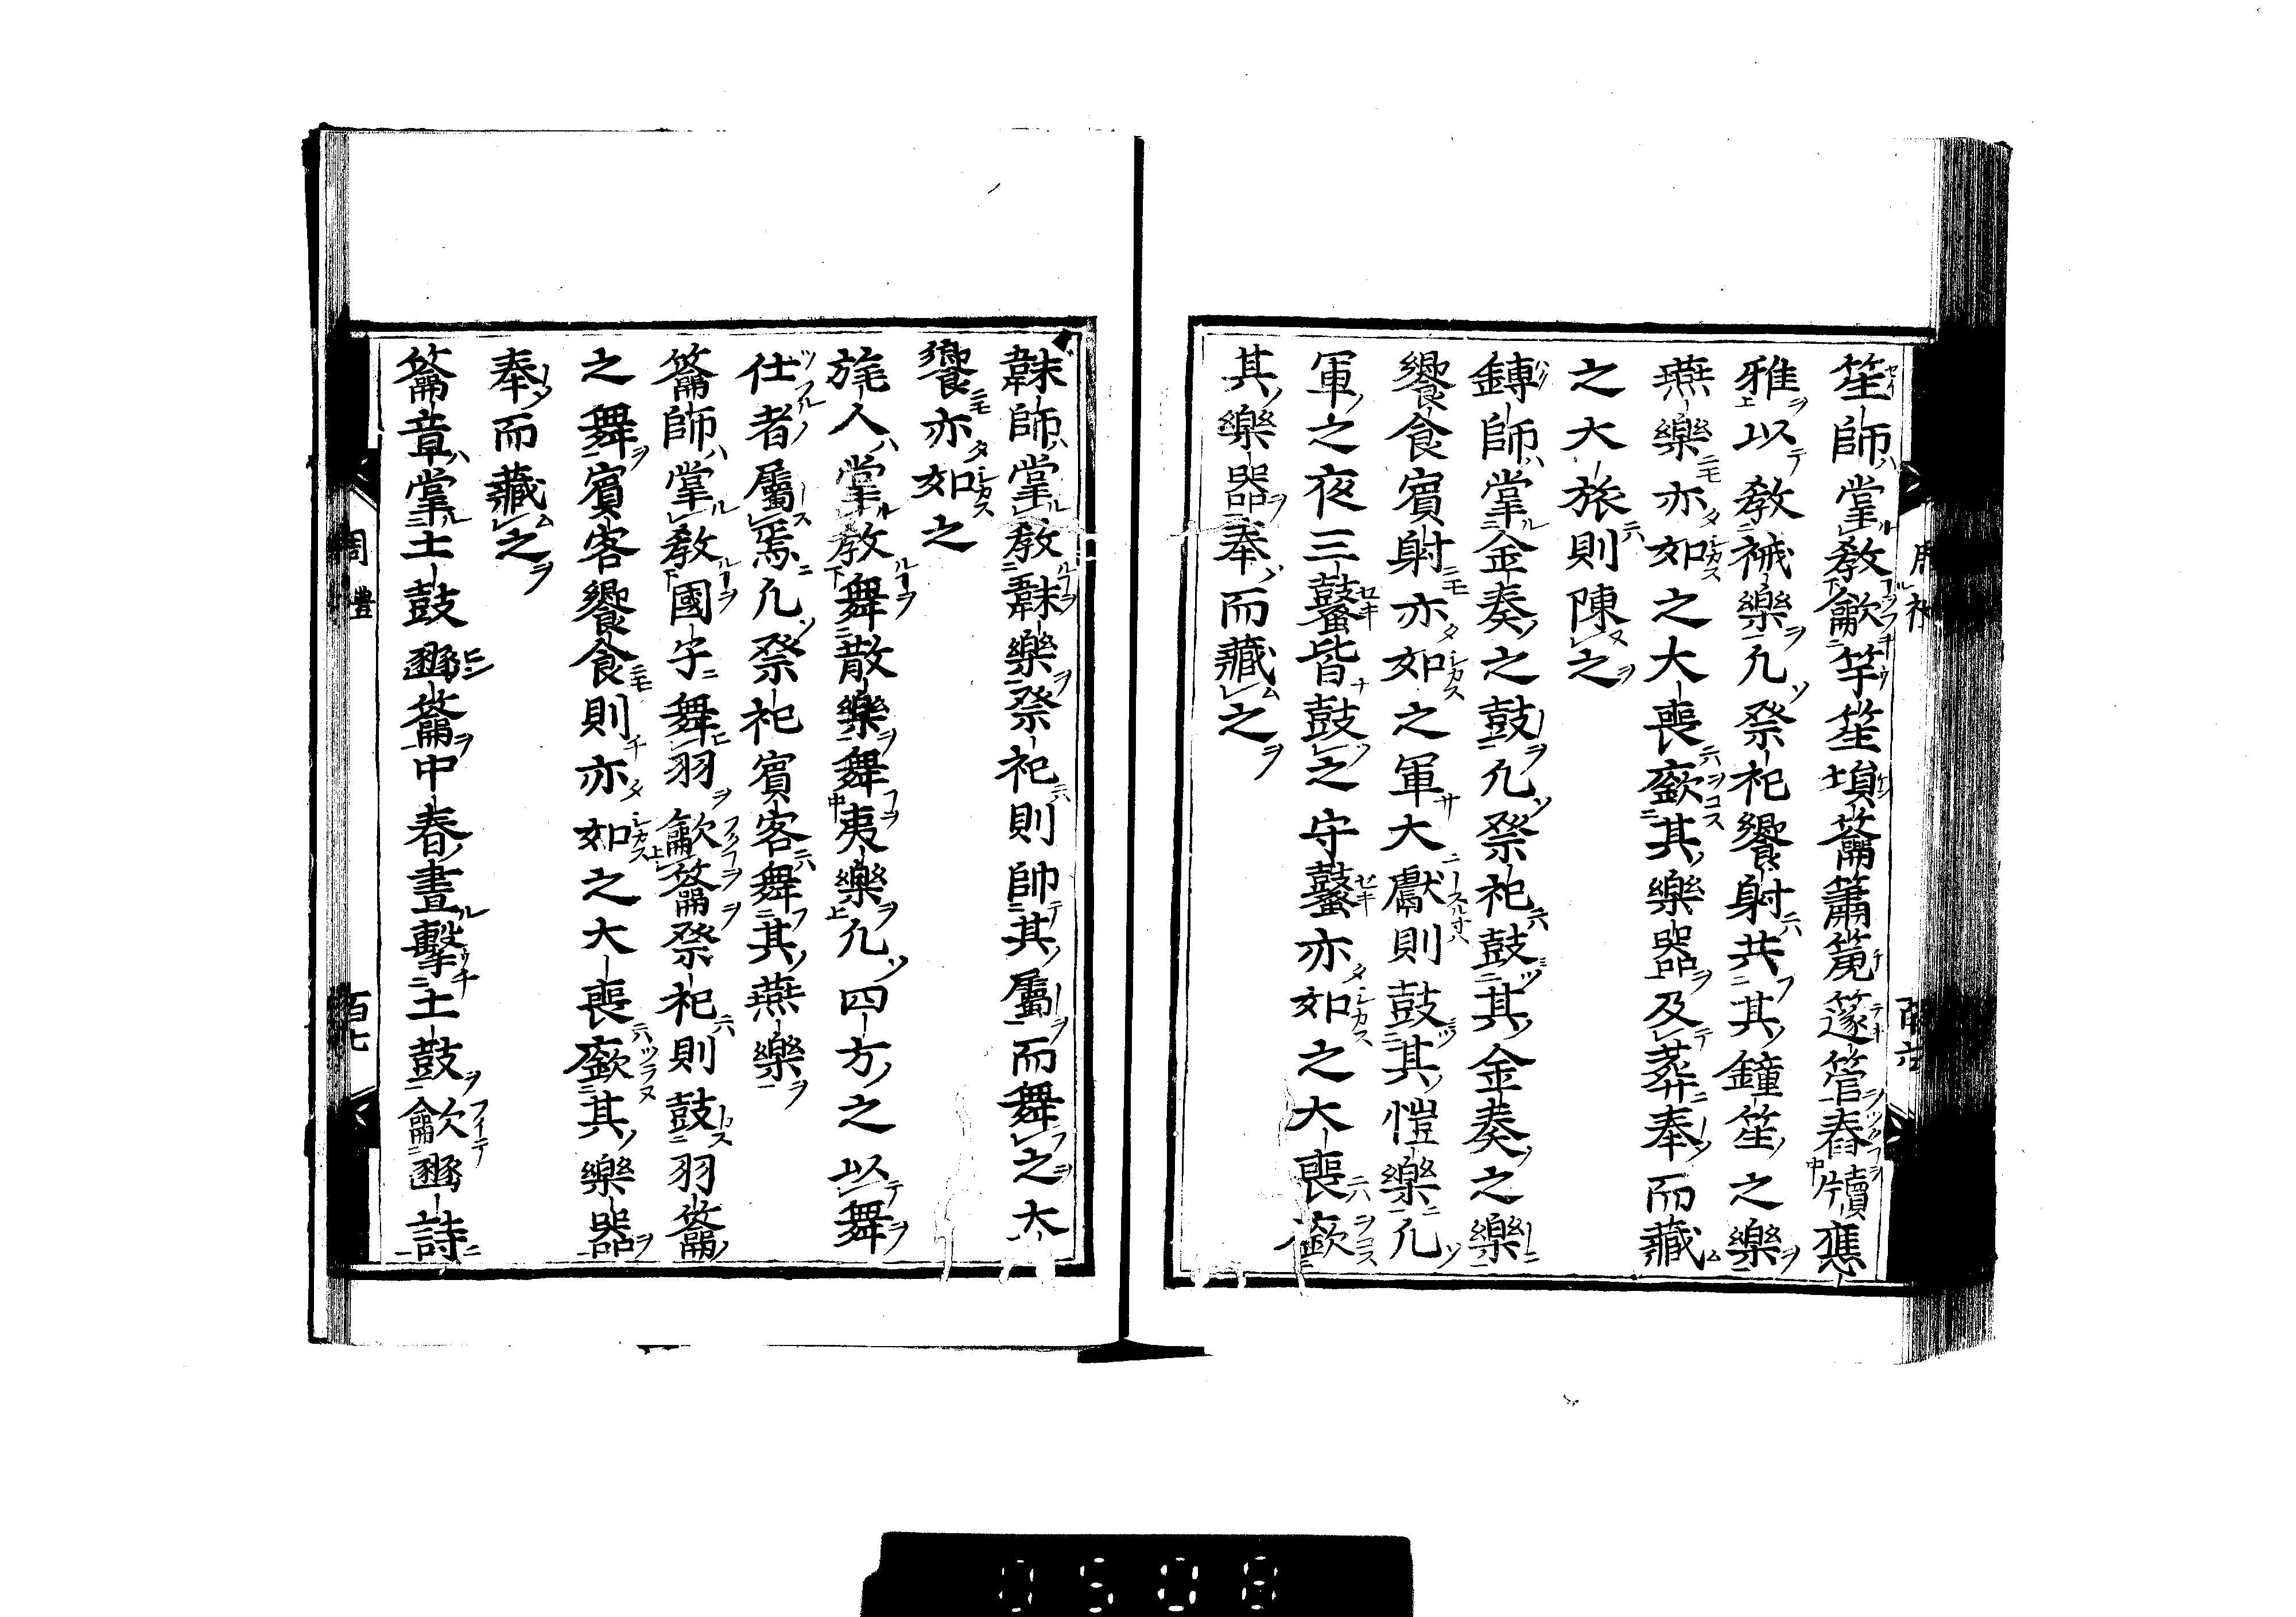 笙師掌教龡竽笙塤籥簫篪篴管舂牘應
雅以教祴樂凡祭祀饗射共其鐘笙之樂
燕樂亦如之大喪廞其樂器及葬奉而藏
之大旅則陳之
鎛師掌金奏之鼓凡祭祀鼓其金奏之樂
饗食賓射亦如之軍大獻則鼓其愷樂凡
軍之夜三鼜皆鼓之守鼜亦如之大喪廞
其樂器奉而藏之
韎師掌教韎樂祭祀則帥其屬而舞之大
饗亦如之
旄人掌教舞散樂舞夷樂凡四方之以舞
仕者屬焉凡祭祀賓客舞其燕樂
籥師掌教國子舞羽龡籥祭祀則鼓羽籥
之舞賓客饗食則亦如之大喪廞其樂器
奉而藏之
籥章掌土鼓豳籥中春晝擊土鼓龡豳詩
周禮
百七
0508